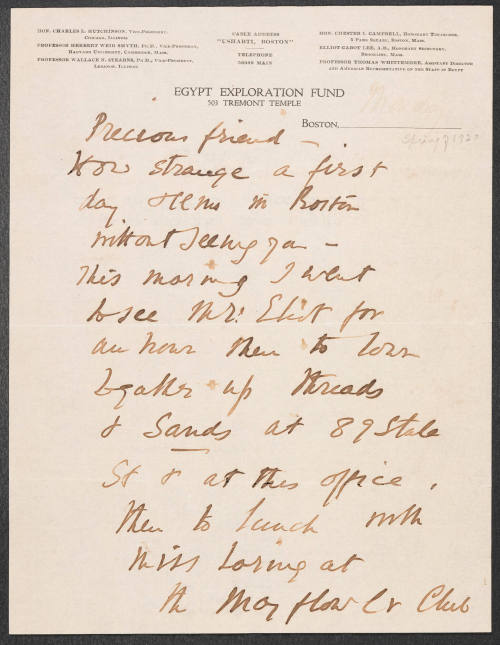 HON. CHARLES L. HUTCHINSON, VICE-PRESIDENT,
CHICAGO, ILLINOIS
PROFESSOR HERBERT WEIR SMYTH, PH.D., VICE-PRESIDENT,
HARVARD UNIVERSITY, CAMBRIDGE, MASS.
PROFESSOR WALLACE N. STEARNS, PH.D., VICE-PRESIDENT,
LEBANON, ILLINOIS
CABLE ADDRESS
"USHABTI, BOSTON"
TELEPHONE
MAIN
HON. CHESTER I. CAMPBELL, HONORARY TREASURER,
5 PARK SQUARE, BOSTON, MASS.
ELLIOT CABOT LEE, A.B., HONORARY SECRETARY,
BROOKLINE, MASS.
PROFESSOR THOMAS WHITTEMORE, ASSISTANT DIRECTOR
AND AMERICAN REPRESENTATIVE OF THE STAFF IN EGYPT
EGYPT EXPLORATION FUND
503 TREMONT TEMPLE
BOSTON,
Spring 1920
Precious friend –
How strange a first
day seems in Boston
without seeing you –
This morning I went
to see Mr. Eliot for
an hour then to town
to gather up threads
& Sands at 89 State
St & at this office,
then to lunch with
Miss Loring at
the Mayflower Club